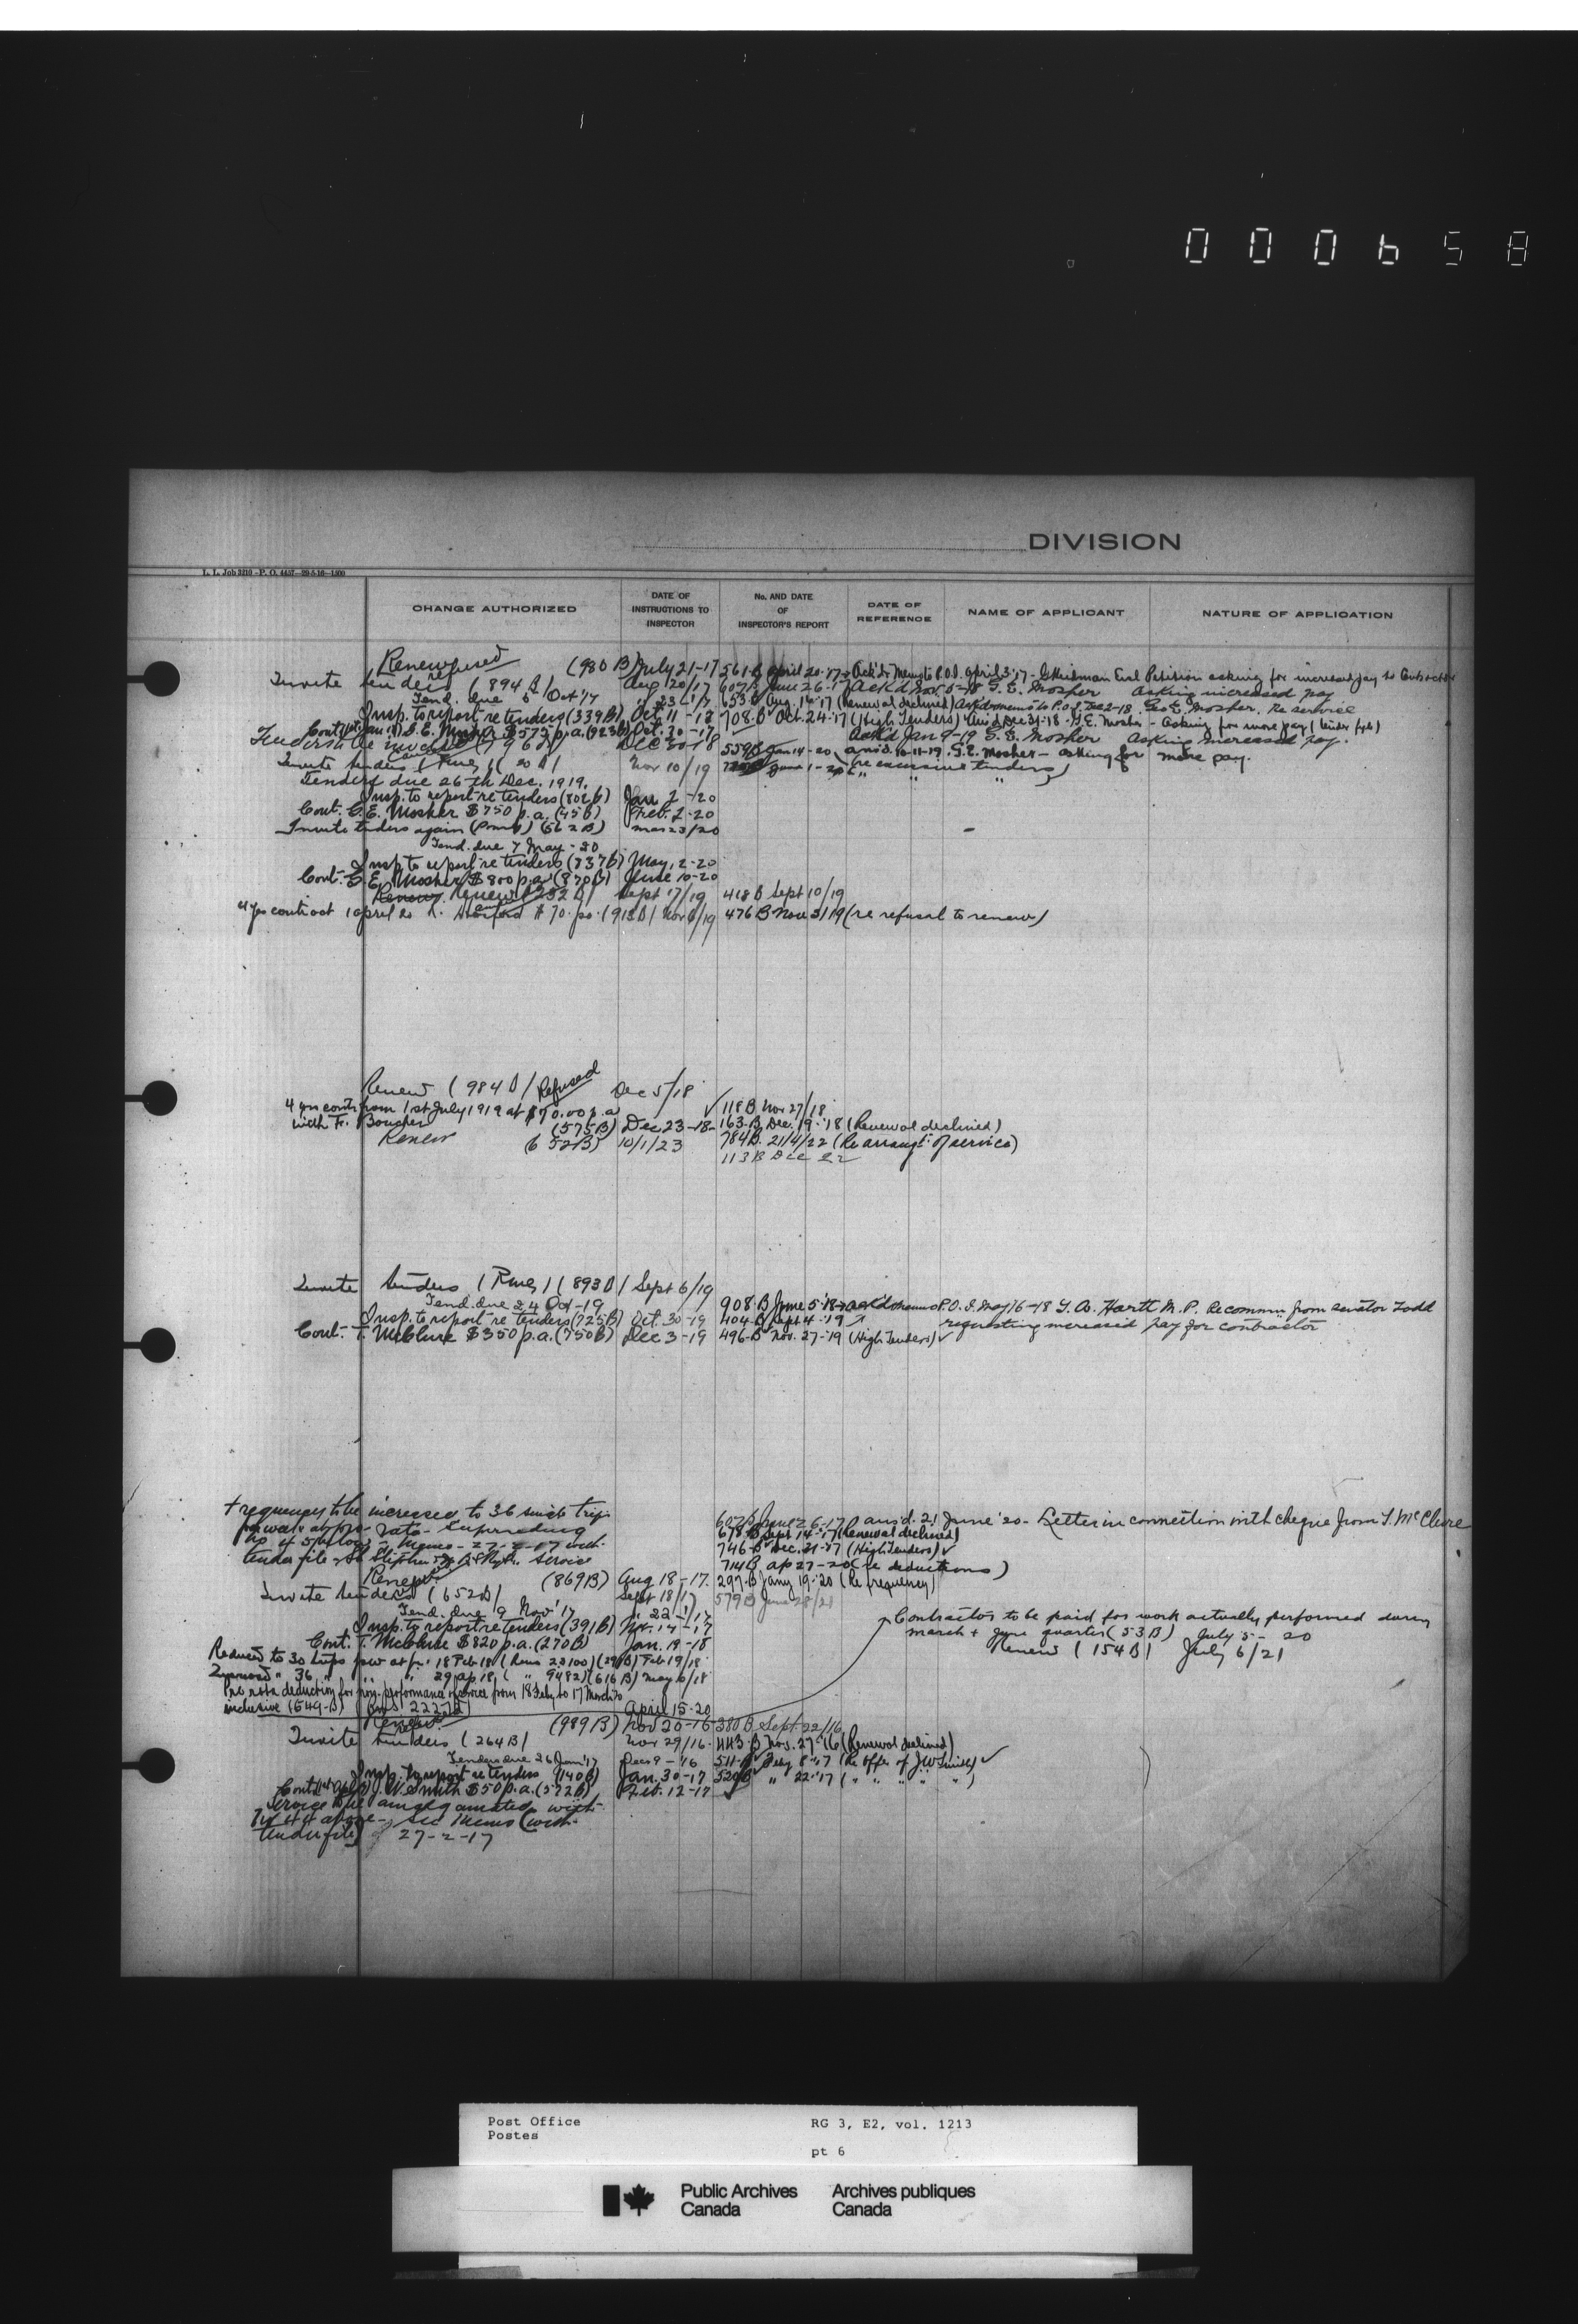 000658
DIVISION
L. L. Job 3210 - P. O. 4457-29-5-16-1500
CHANGE AUTHORIZED
DATE OF INSTRUCTIONS TO INSPECTOR
No. AND DATE OF INSPECTOR'S REPORT
DATE OF REFERENCE
NAME OF APPLICANT
NATURE OF APPLICATION
Renew refused (980 B) July 21-17 561-B April 20-'17 Ack'd & Memo to P.O.I. April 3'17 - Petition asking for increased pay to Contractor
Invite tenders (894 B) Aug 20/17 607 B June 26-17 Ack'd Nov. 5-18 G. E. Mosher asking increased pay
Tend. due 6 Oct '17 653-B Aug. 14-'17 (Renewal declined) Ack'd memo to P.O.I. Dec 2-18 Geo E. Mosher. Re service
Insp. to report re tenders (339B) Oct 11-17 708-B Oct. 24-'17 (High Tenders) Ans'd Dec 31-'18 - G.E. Mosher - asking for more pay (tender file)
Cont. (1st Jan. 18) G. E. Mosher $575 p.a. (923B) Oct. 30-17 Ack'd Jan 9-19 G. E. Mosher asking increased pay.
Dec 30-18 559B Jan 14-20 ans'd. 10-11-19. G.E. Mosher - asking for more pay.
Invite tenders (Rmg) (20 B) Nov 10/19 June 1-20 (re excessive tenders)
Tenders due 26th Dec. 1919.
Insp. to report re tenders (802 B) Jan 2-20
Cont. G. E. Mosher $750 p.a. (45 B) Feb. 2-20
Invite tenders again (562 B) Mar 23/20
Tend. due 7 May-20
Insp to report re tenders (737B) May 12-20
Cont. G. E. Mosher $800 p.a. (870B) June 10-20
Renew (232 B) Sept 17/19 418 B Sept 10/19
4 yr contract 1 april 20 $70. pa. (913 B) Nov 6/19 476 B Nov 3/19 (re refusal to renew)
Renew (984 B) Refused Dec 5/18
118 B Nov 27/18
4 yrs contr. from 1st July 1919 at $70.00 p.a.
with F. Boucher (575B) Dec 23-18- 163-B Dec. 19-'18 (Renewal declined)
Renew (652B) 10/1/23 784B. 21/4/22 (Re arrangt. of service)
113 B Dec 22
Invite tenders (Rmg) (893 B) Sept 6/19
Tend. due 24 Oct-19 908-B June 5-'18 Ack'd & memo P.O.I. May 16-18 T. A. Hartt M.P. Recomm. from Senator Todd
Insp. to report re tenders (725B) Oct. 30-19 404-B Sept 4-'19 requesting increased pay for contractor
Cont. T. McClure $350 p.a. (750B) Dec 3-19 496-B Nov. 27-'19 (High Tenders)
Frequency to be increased to 36 single trips
per week at pro- rata - superseding
607 B June 26-17 ans'd. 21 June '20 - Letter in connection with cheque from T. McClure
678 B Sept 14-'17 (Renewal declined)
746-B Dec. 21-17 (High Tenders)
714 B ap 27-20 (re deductions)
tender file St Stephen service
Renew (869B) Aug 18-17. 297-B Jany 19-'20 (Re frequency)
Invite tenders (652B) Sept 18/17 579 B June 28/21
Tend. due 9 Nov '17
Insp. to report re tenders (391B) Nov. 14-17
Cont. T. McClure $820 p.a. (270B) Jan. 19-18
Contractor to be paid for work actually performed during
March + June quarter (53 B) July 5-20
Renew (154 B) July 6/21
Reduced to 30 trips p.w. at p.r. 18 Feb 18 (Rmg 22100) (29 B) Feb 19/18
Increased " 36 " " 29 ap 18 ( " 9482) (616 B) May 6/18
Pro rata deduction for non-performance of service from 18 Feby to 17 March 20
inclusive (549-B) April 15-20
Renew (989B) Nov 20-16 380 B Sept. 22/16
Invite tenders (264 B) Nov 29/16. 443-B Nov. 27-'16 (Renewal declined)
Tenders due 26 Jan '17 Dec 9-'16 511-B Feby 8-'17 (Re offer of J.W. Smith)
Insp. to report re tenders (140B) Jan. 30-17 520 B " 22-'17 ( " " " " )
J. W. Smith $50 p.a. (572B) Feb. 12-17
Service to be amalgamated with
above - see Memo (with
tender file) of 27-2-17
Post Office
Postes
RG 3, E2, vol. 1213
pt 6
Public Archives Canada
Archives publiques Canada